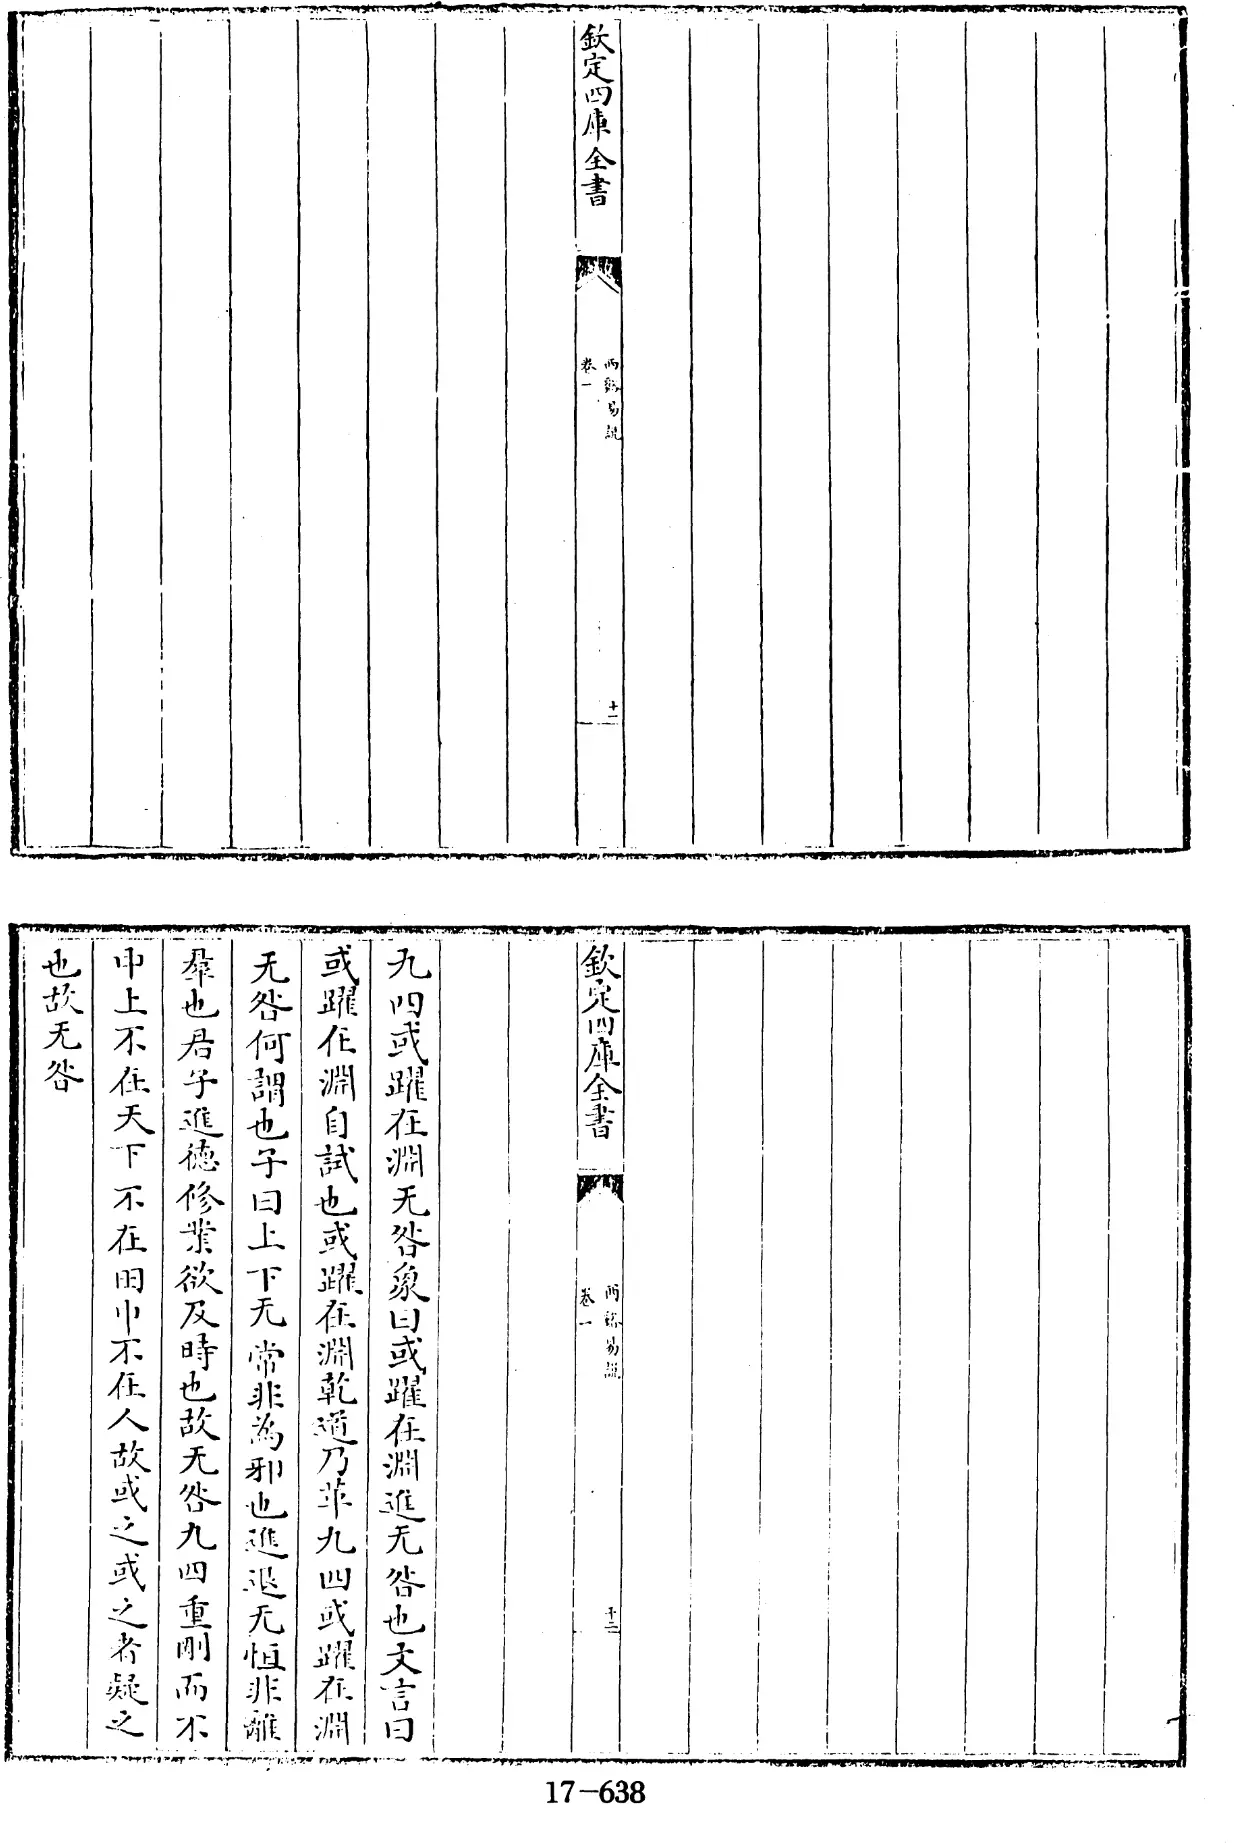 欽定四庫全書
西谿易説
卷一
十一
欽定四庫全書
西谿易説
卷一
十二
九四或躍在淵无咎象曰或躍在淵進无咎也文言曰
或躍在淵自試也或躍在淵乾道乃革九四或躍在淵
无咎何謂也子曰上下无常非為邪也進退无恒非離
羣也君子進德修業欲及時也故无咎九四重剛而不
中上不在天下不在田中不在人故或之或之者疑之
也故无咎
17-638